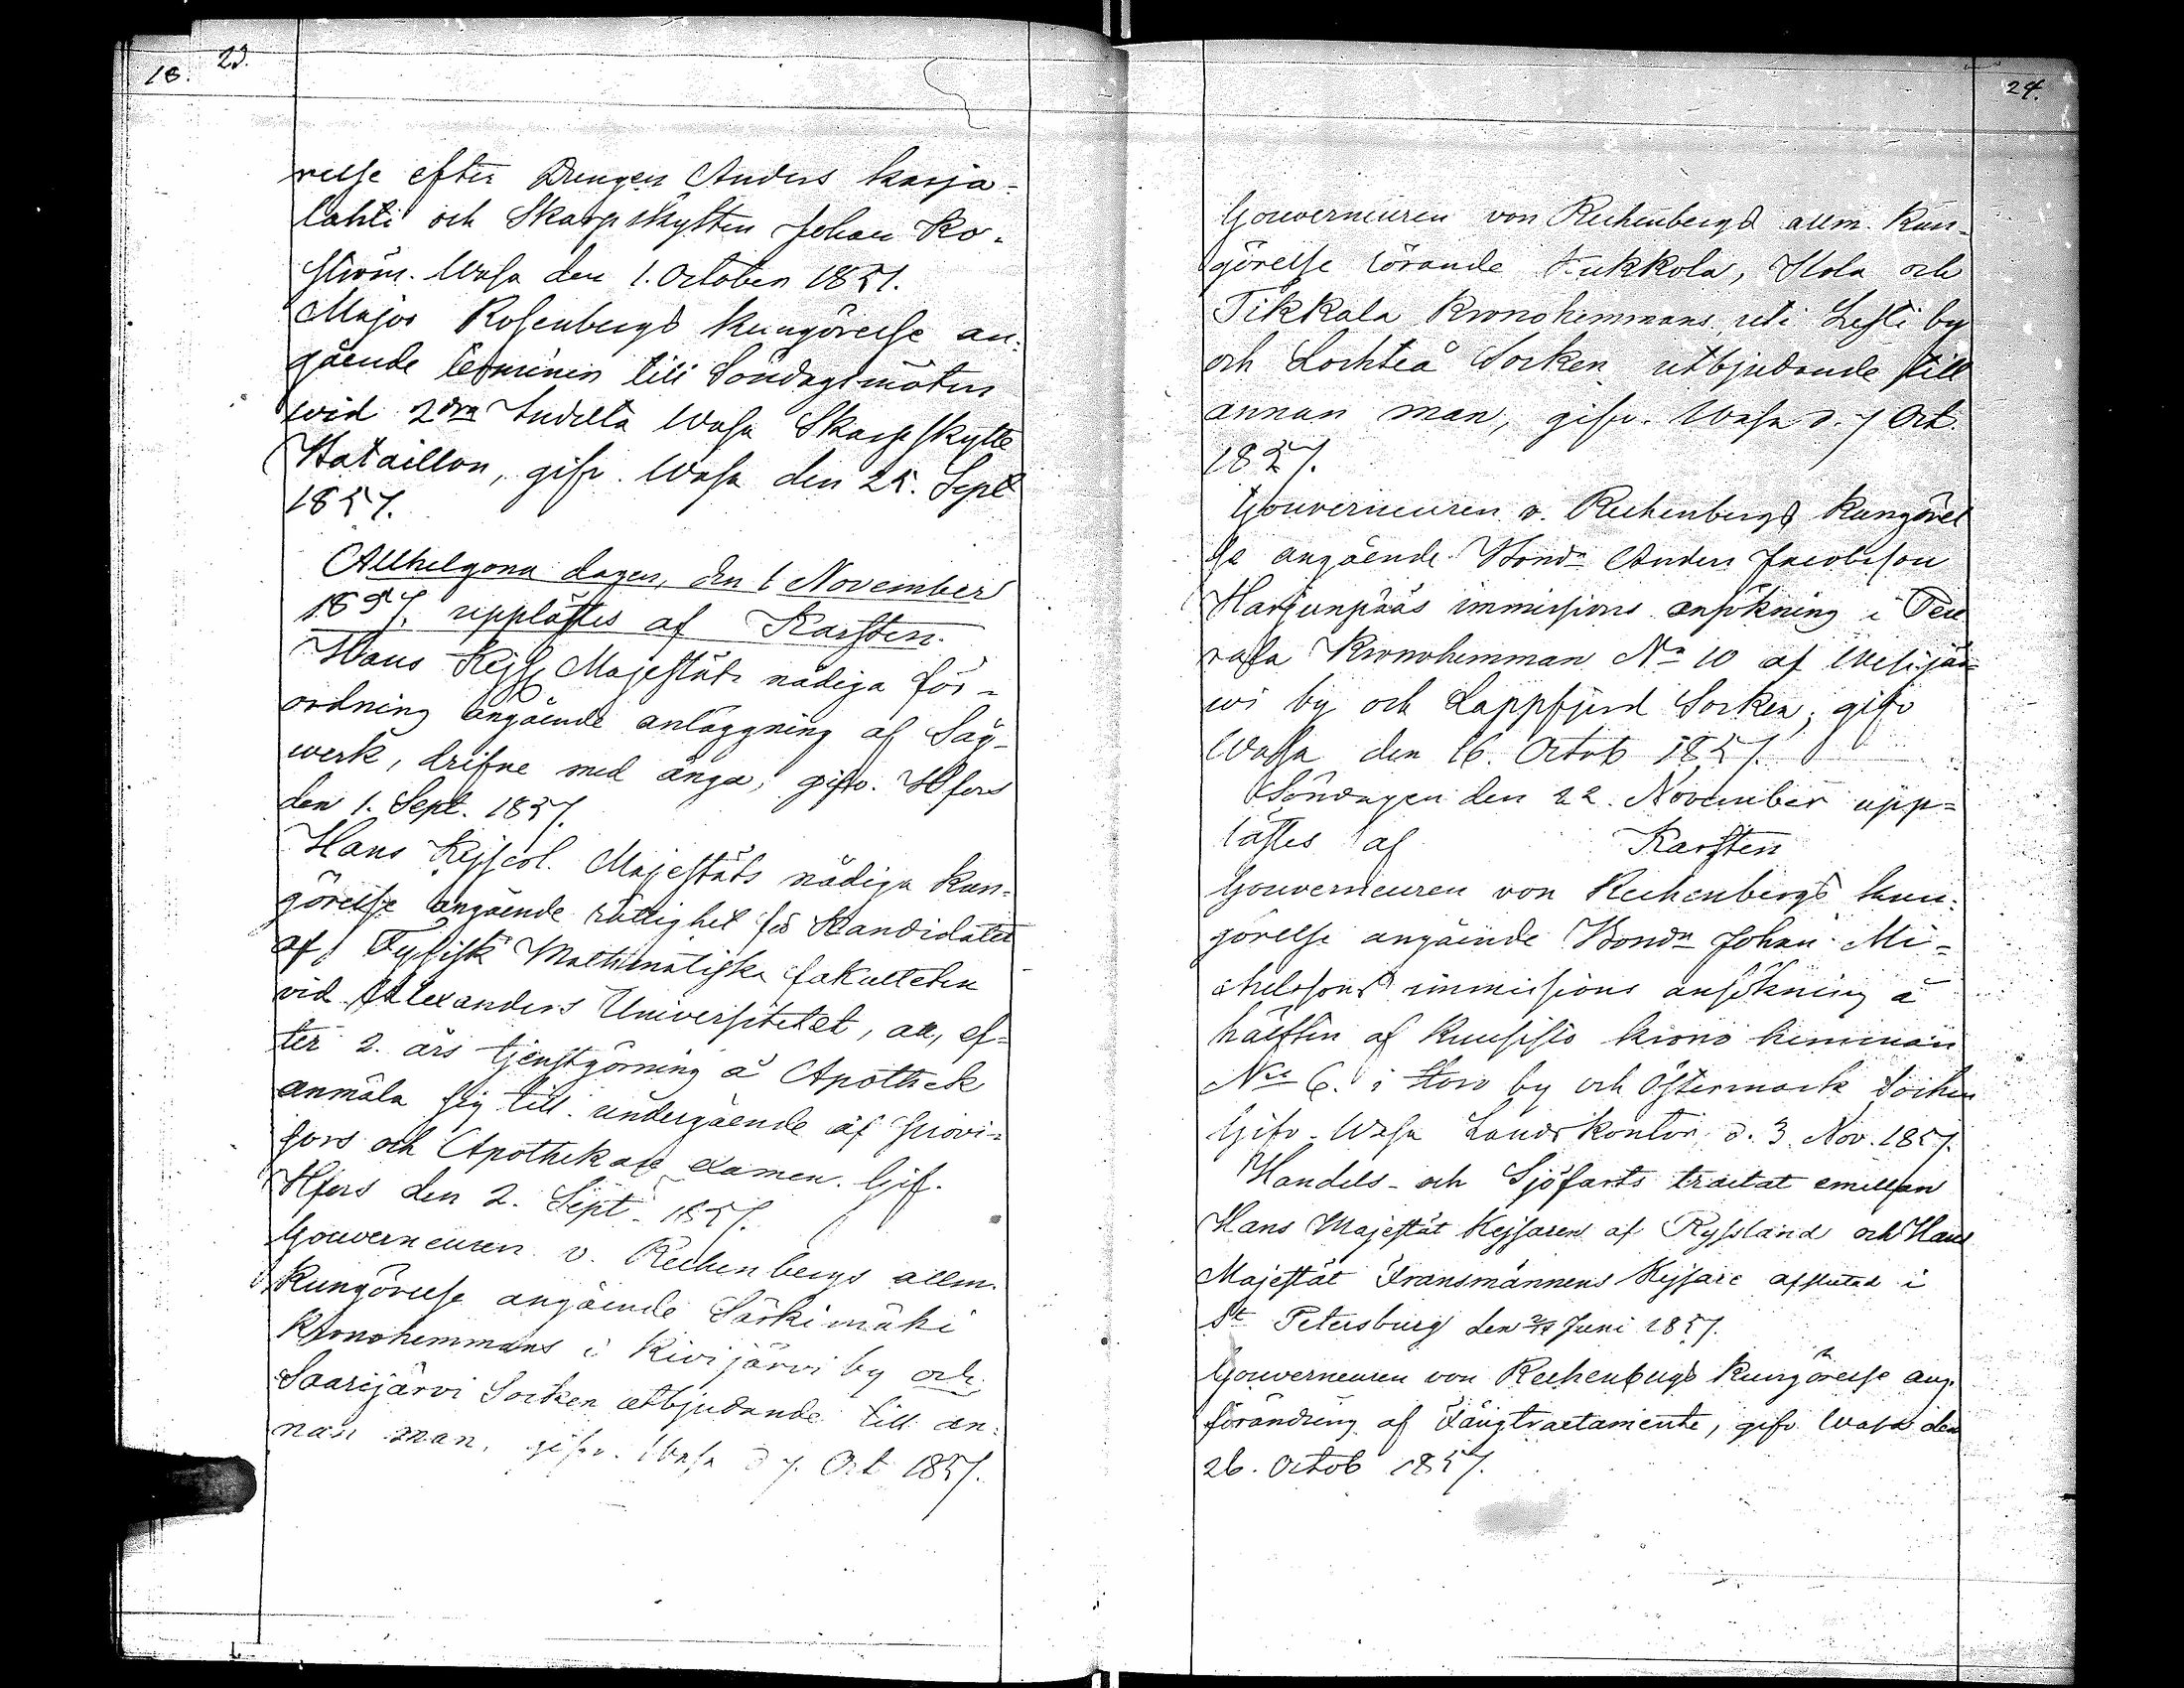 18. 23.
relse efter Drengen Anders karja-
lahti och Skarpskytten Johan Ko-
ström. Wasa den 1. October 1857.
Major Rosenbergs kungörelse an-
gående terminen till Söndagsmöten
wid 2dra Indelta Wasa Skarpskytte
Bataillon, gifv. Wasa den 25. Sept
1857.
Allhelgona dagen, den 1 November
1857, upplästes af Karsten.
Hans Kejs. Majestäts nådiga för-
ordning angående anläggning af Såg-
werk, drifne med ånga, gifv. Hfors
den 1. Sept. 1857.
Hans Kejserl. Majestäts nådiga kun-
görelse angående rättighet för Kandidater
af Fysisk Mathematiska fakulteten
vid Alexanders Universitetet, att, ef-
ter 2. års tjenstgörning å Apothek
anmäla sig till undergående af Provi-
sors och Apothekare examen. Gif.
Hfors den 2. Sept. 1857.
Gouverneuren v. Rechenbergs allm.
Kungörelse angående Särkimäki
Kronohemmans i Kivijärvi by och
Saarijärvi Socken utbjudande till an-
nan man, gifv. Wasa d 7. Oct 1857.
24.
Gouverneuren von Rechenbergs allm. Kun-
görelse rörande Kukkola, Hola och
Tikkala Kronohemmans uti Lesti by
och Lochteå Socken utbjudande till
annan man, gifv. Wasa d. 7 Oct.
1857.
Gouverneuren v. Rechenbergs Kungörel
se angående Bondn Anders Jacobsson
Harjunpääs immissions ansökning i
Kronohemman No 10 af Wesijär-
wi by och Lappfjerd Socken, gifv
Wasa den 16. Octob 1857.
Söndagen den 22. November upp-
lästes af Karsten
Gouverneuren von Rechenbergs kun-
görelse angående Bondn Johan Mi-
chelssons immissions ansökning å
hälften af Kuusisto krono hemman
No 6. i by och Östermark Socken
Gifv. Wasa Landskontor, d. 3. Nov. 1857.
Handels- och Sjöfarts traetat emellan
Hans Majestät Kejsaren af Ryssland och Hans
Majestät Fransmännens Kejsare afslutad i
St Petersburg den 2/14 Juni 1857.
Gouverneuren von Rechenbergs Kungörelse ang.
förändring af Fångtraetamente, gifv Wasa den
26. Octob 1857.